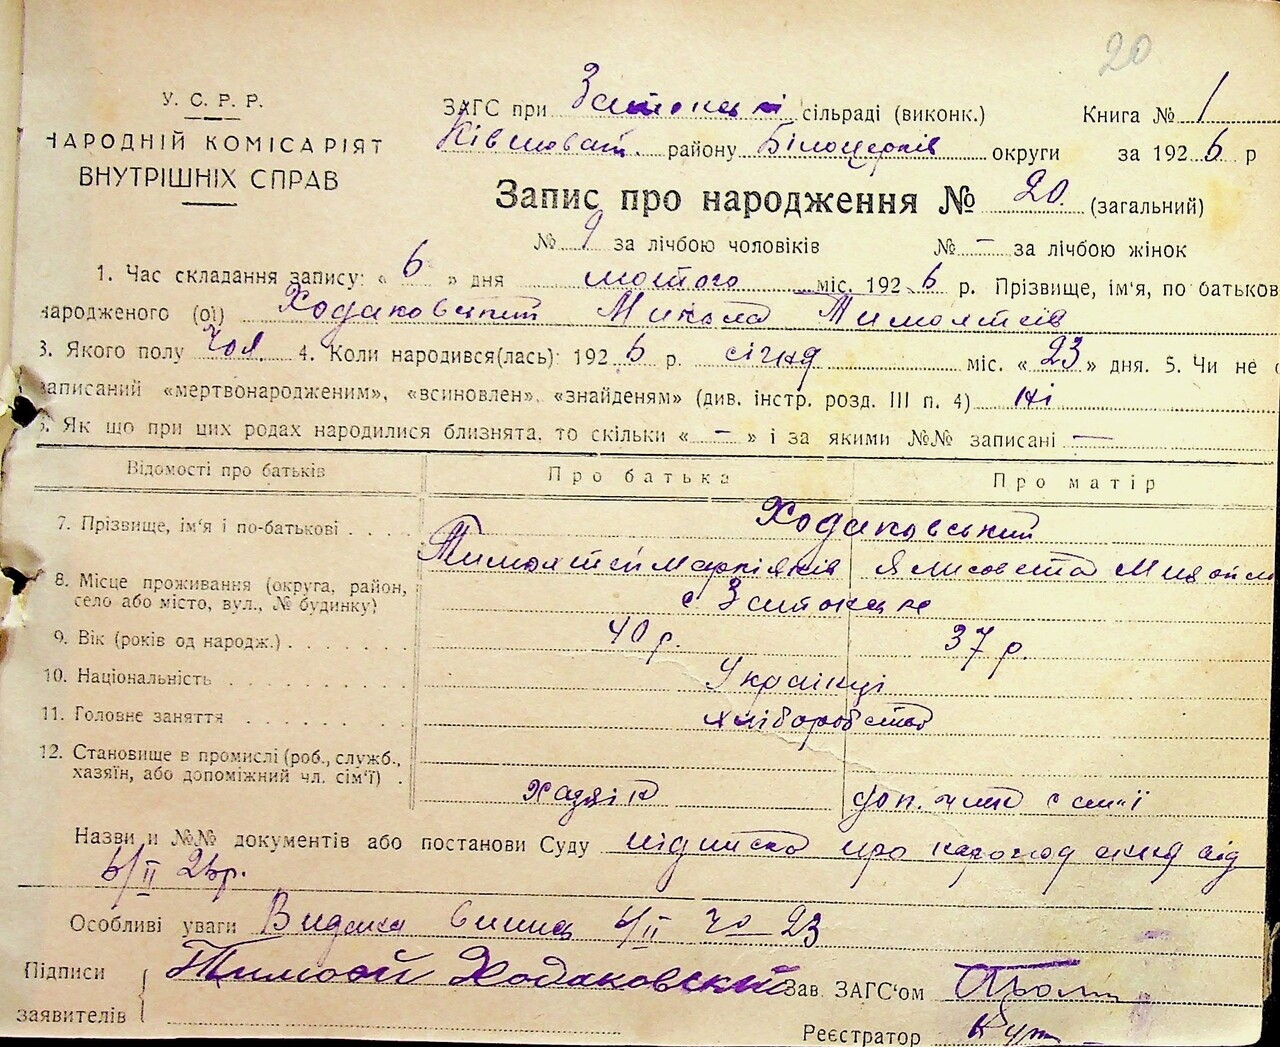 20
У. С. Р. Р.
НАРОДНІЙ КОМІСАРІЯТ
ВНУТРІШНІХ СПРАВ
ЗАГС при сільраді (виконк.) Книга № 1
району Білоцерків округи за 1926 р
Запис про народження № 20. (загальний)
№ 9 за лічбою чоловіків № – за лічбою жінок
1. Час складання запису: « 6 » дня лютого міс. 1926 р. Прізвище, ім'я, по батьков
народженого (ої) Ходаковський Микола Тимофтеїв
3. Якого полу чол. 4. Коли народився(лась): 1926 р. січня міс. « 23 » дня. 5. Чи не
записаний «мертвонародженим», «всиновлен», «знайденям» (див. інстр. розд. III п. 4) ні
6. Як що при цих родах народилися близнята, то скільки « – » і за якими №№ записані —
Відомості про батьків Про батька Про матір
7. Прізвище, ім'я і по-батькові Ходаковський
Тимофтей
8. Місце проживання (округа, район,
село або місто, вул., № будинку) с
9. Вік (років од народж.) 40 р. 37 р.
10. Національність Українці
11. Головне заняття хліборобство
12. Становище в промислі (роб., служб.,
хазяїн, або допоміжний чл. сім'ї) хазяїн доп. член сем'ї
Назви и №№ документів або постанови Суду підписка про народження від
6/II 26р.
Особливі уваги Видана випись 6/II № 23
Підписи Тимофей Ходаковский Зав. ЗАГС'ом
заявителів
Реєстратор